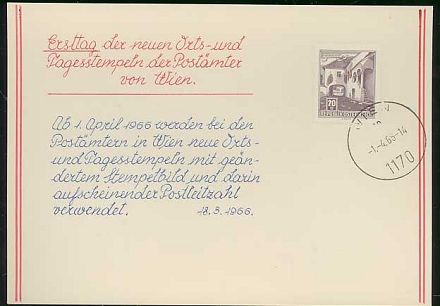 Ersttag der neuen Orts- und
Tagesstempeln der Postämter
von Wien.
Ab 1. April 1966 werden bei den
Postämtern in Wien neue Orts-
und Tagesstempeln mit geän-
dertem Stempelbild und darin
aufscheinender Postleitzahl
verwendet. 18.3.1966.
20
REPUBLIK ÖSTERREICH
WIEN
-1.-4.66-14
1170